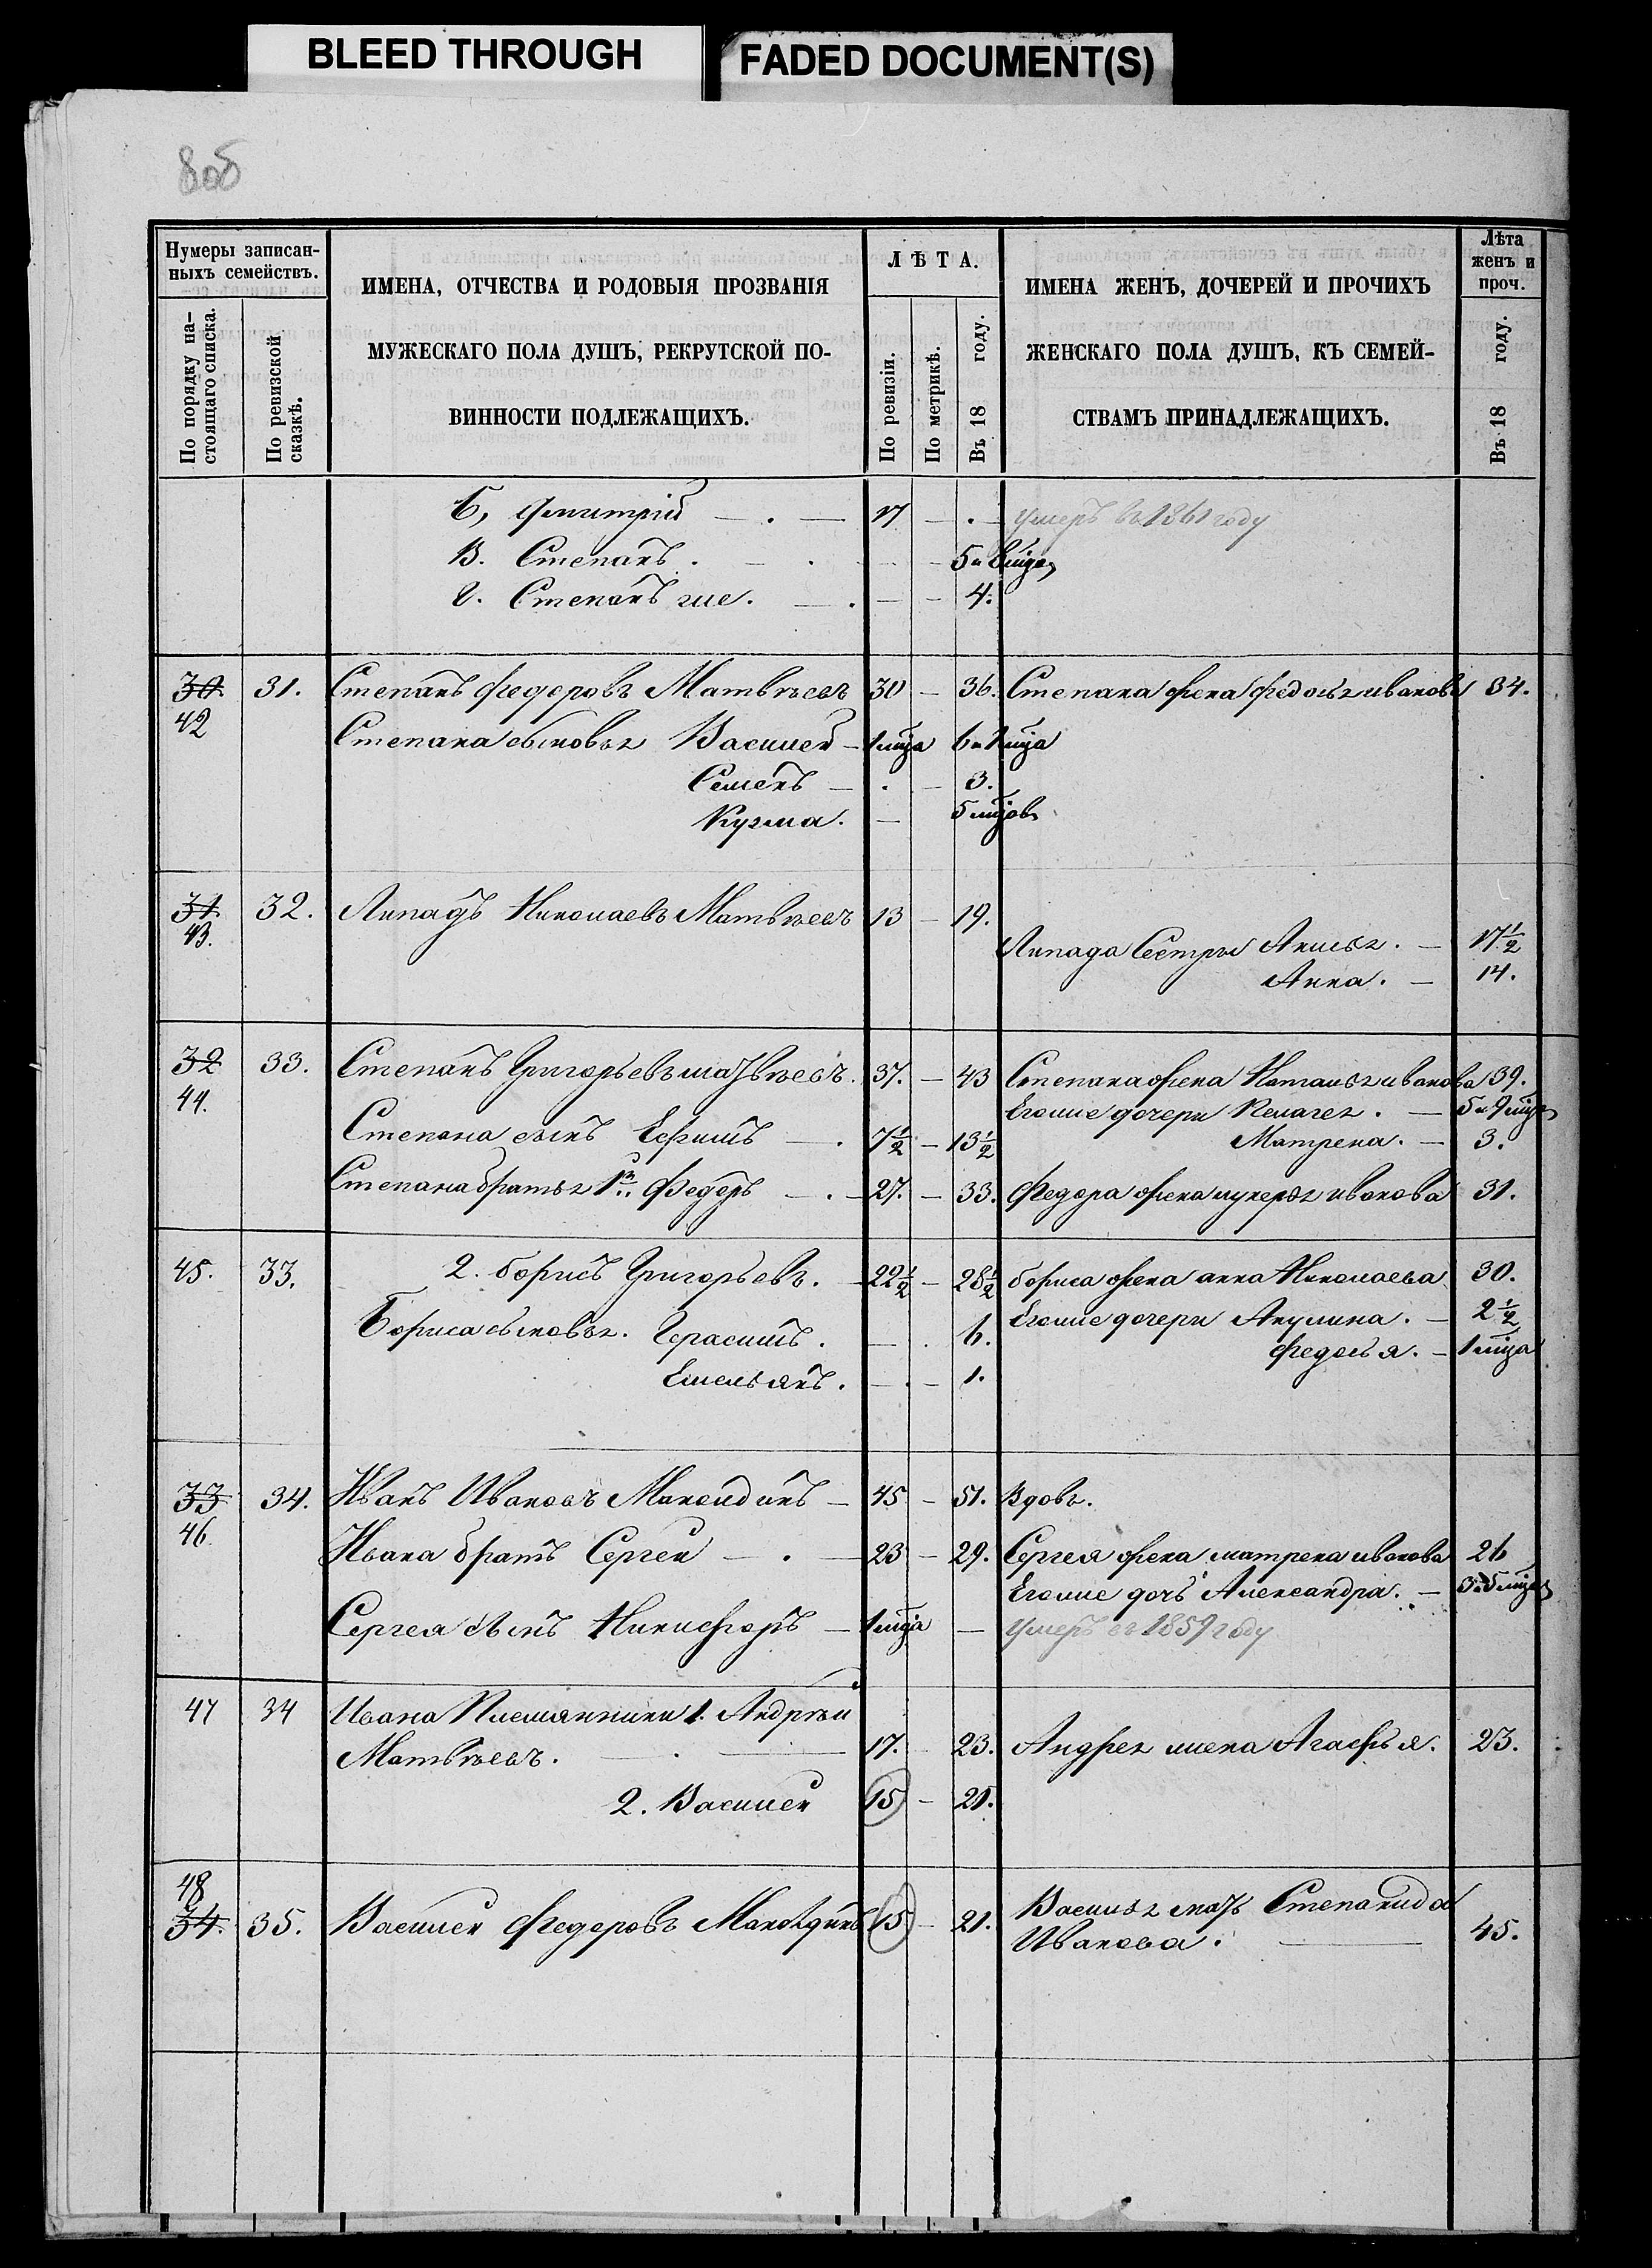 BLEED THROUGH
FADED DOCUMENT(S)
8об
Нумеры записан-
ныхъ семействъ.
По порядку на-
стоящаго списка.
По ревизской
сказкѣ.
ИМЕНА, ОТЧЕСТВА И РОДОВЫЯ ПРОЗВАНІЯ
МУЖЕСКАГО ПОЛА ДУШЪ, РЕКРУТСКОЙ ПО-
ВИННОСТИ ПОДЛЕЖАЩИХЪ.
ЛѢТА.
По ревизіи.
По метрикѣ.
Въ 18 году.
ИМЕНА ЖЕНЪ, ДОЧЕРЕЙ И ПРОЧИХЪ
ЖЕНСКАГО ПОЛА ДУШЪ, КЪ СЕМЕЙ-
СТВАМЪ ПРИНАДЛЕЖАЩИХЪ.
Лѣта
женъ и
проч.
Въ 18 году.
Б, Дмитрій — . — 17 — . — умеръ въ 1861 году
В. Степанъ . — . — — 5 и 8 мѣця
Г. Степанъ же. — . — — 4.
30. 31. Степанъ Федоровъ Матвѣевъ 30 — 36. Степана жена Федосья Иванова 34.
42 Степана сыновья Василей — 1 мѣца 6 и 1 мѣца
Семенъ — . — 3.
Кузма. — 5 мѣцовъ
31. 32. Николаевъ Матвѣевъ 13 — 19.
43. Сестры . — 17½
Анна. — 14.
32 33. Степанъ Григорьевъ Матвѣевъ. 37. — 43 Степана жена Наталья Иванова 39.
44. Егоже дочери Пелагея. — 5 и 9 мѣця
Степана сынъ Ефимъ — . 7½ — 13½ Матрена. — 3.
Степана братья 1й Федоръ — . — 27. — 33. Федора жена Лукерья Иванова 31.
45. 33. 2. Борисъ Григорьевъ. — 22½ — 28½ Бориса жена Анна Николаева 30.
Бориса сыновья. Герасимъ. — . 6. Егоже дочери Акулина. — 2½
Федосья. — 1 мѣца
Емельянъ. — . — 1.
33 34. Иванъ Ивановъ — 45 — 51. Вдовъ.
46. Ивана братъ Сергей — . — 23 — 29. Сергея жена Матрена Иванова 26
Егоже дочь Александра. — 3 и 5 мѣця
Сергея сынъ Никифоръ — 1 мѣца — умеръ въ 1859 году
47 34 Ивана Племянники 1. Андрѣй
Матвѣевъ. — . — 17. — 23. Андрея жена Агафья. 23.
2. Василей 15 — 21.
48
34. 35. Василей Федоровъ 15 — 21. Василья мать Степанида
Иванова. — 45.